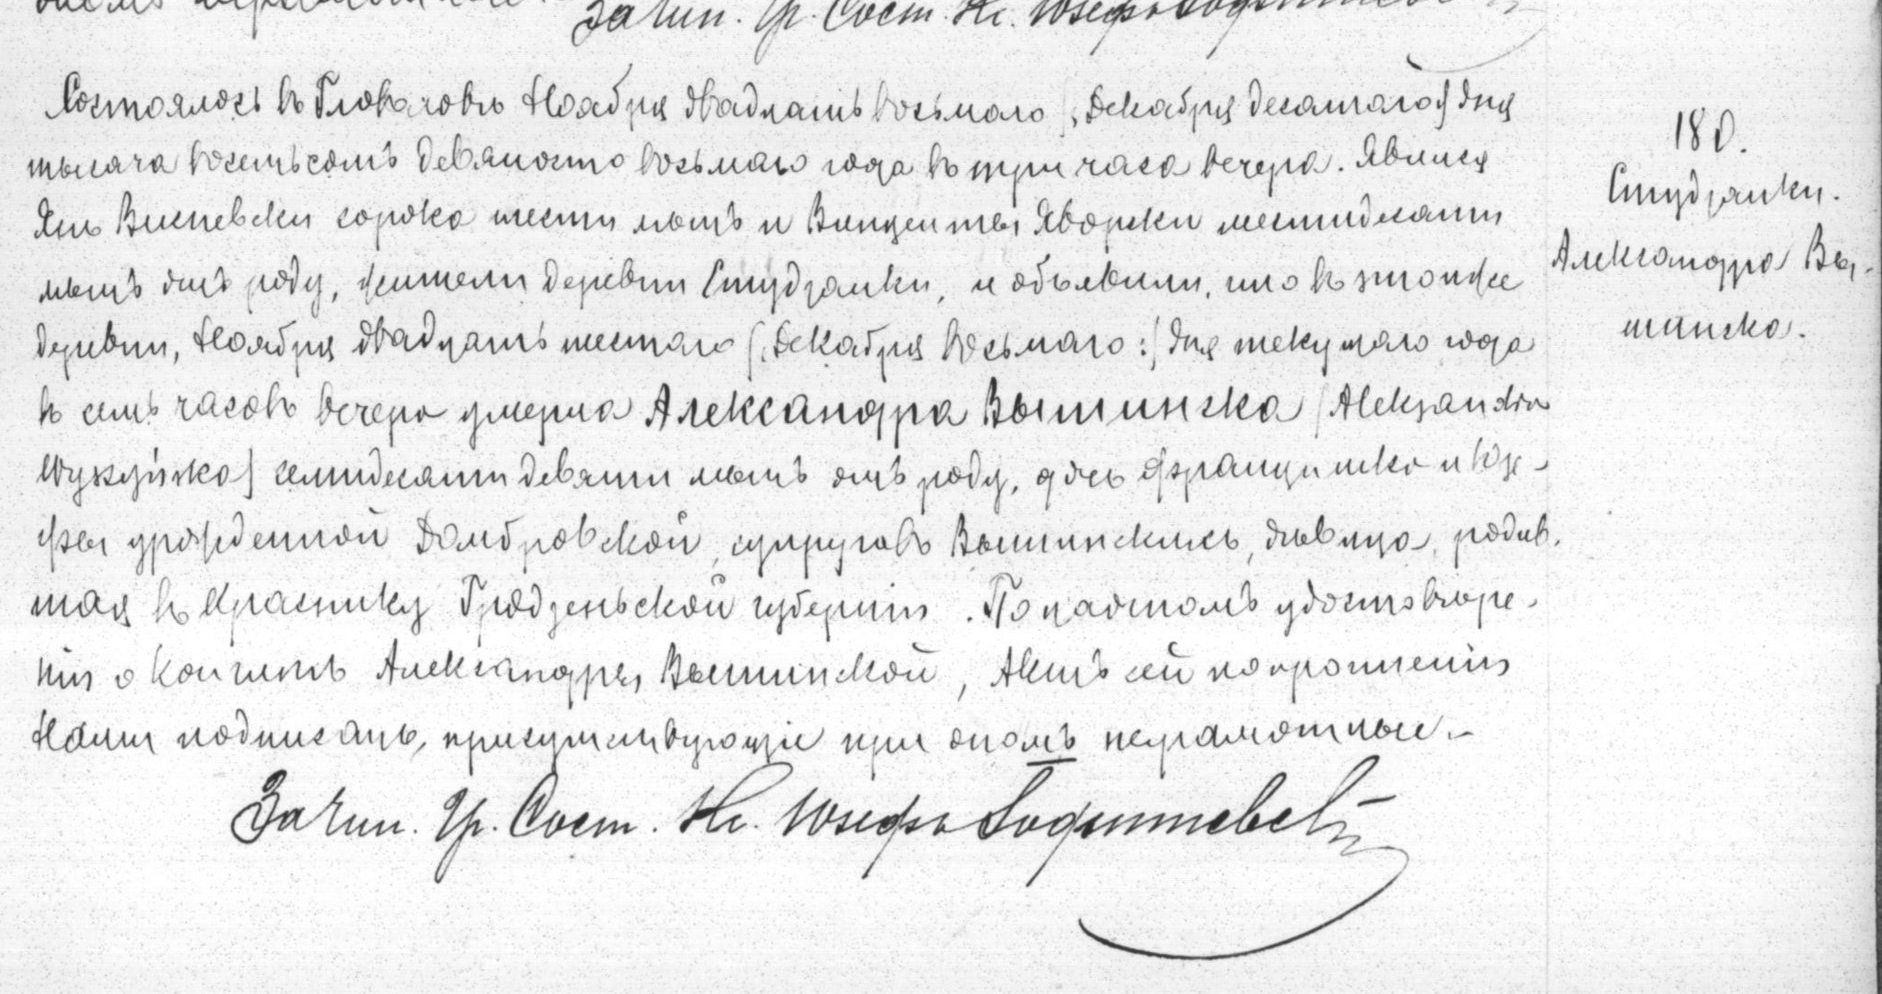 Зачин. Гр. Сост. Кс. Юзефъ
Состоялось въ Гловачовѣ Ноября двадцать восьмаго /: Декабря десятаго :/ дня
тысяча восемьсотъ девяносто восьмаго года въ три часа вечера. Явился
Янъ Виспевски сорока шести лѣтъ и Винцентый Яворски шестидесяти
лѣтъ отъ роду, жители деревни Студзянки, и объявили, что въ этой же
деревни, Ноября двадцать шестаго /: Декабря восьмаго :/ дня текущаго года
въ семь часовъ вечера умерла Александра Вышинска /Aleksandra
Wyszyńska/ семидесяти девяти лѣтъ отъ роду, дочь Францишка и Юзе-
фы урожденной Домбровской, супруговъ Вышинскихъ, дѣвица, родив-
шая въ Краснику Гродзеньской губерніи. По настомъ удостовѣре-
ніи о кончинѣ Александры Вышинской, Актъ сей по прочтеніи
Нами подписанъ, присутствующіе при ономъ неграмотные.-
Зачин. Гр. Сост. Кс. Юзефъ
180.
Студзянки.
Александра Вы-
шинска.